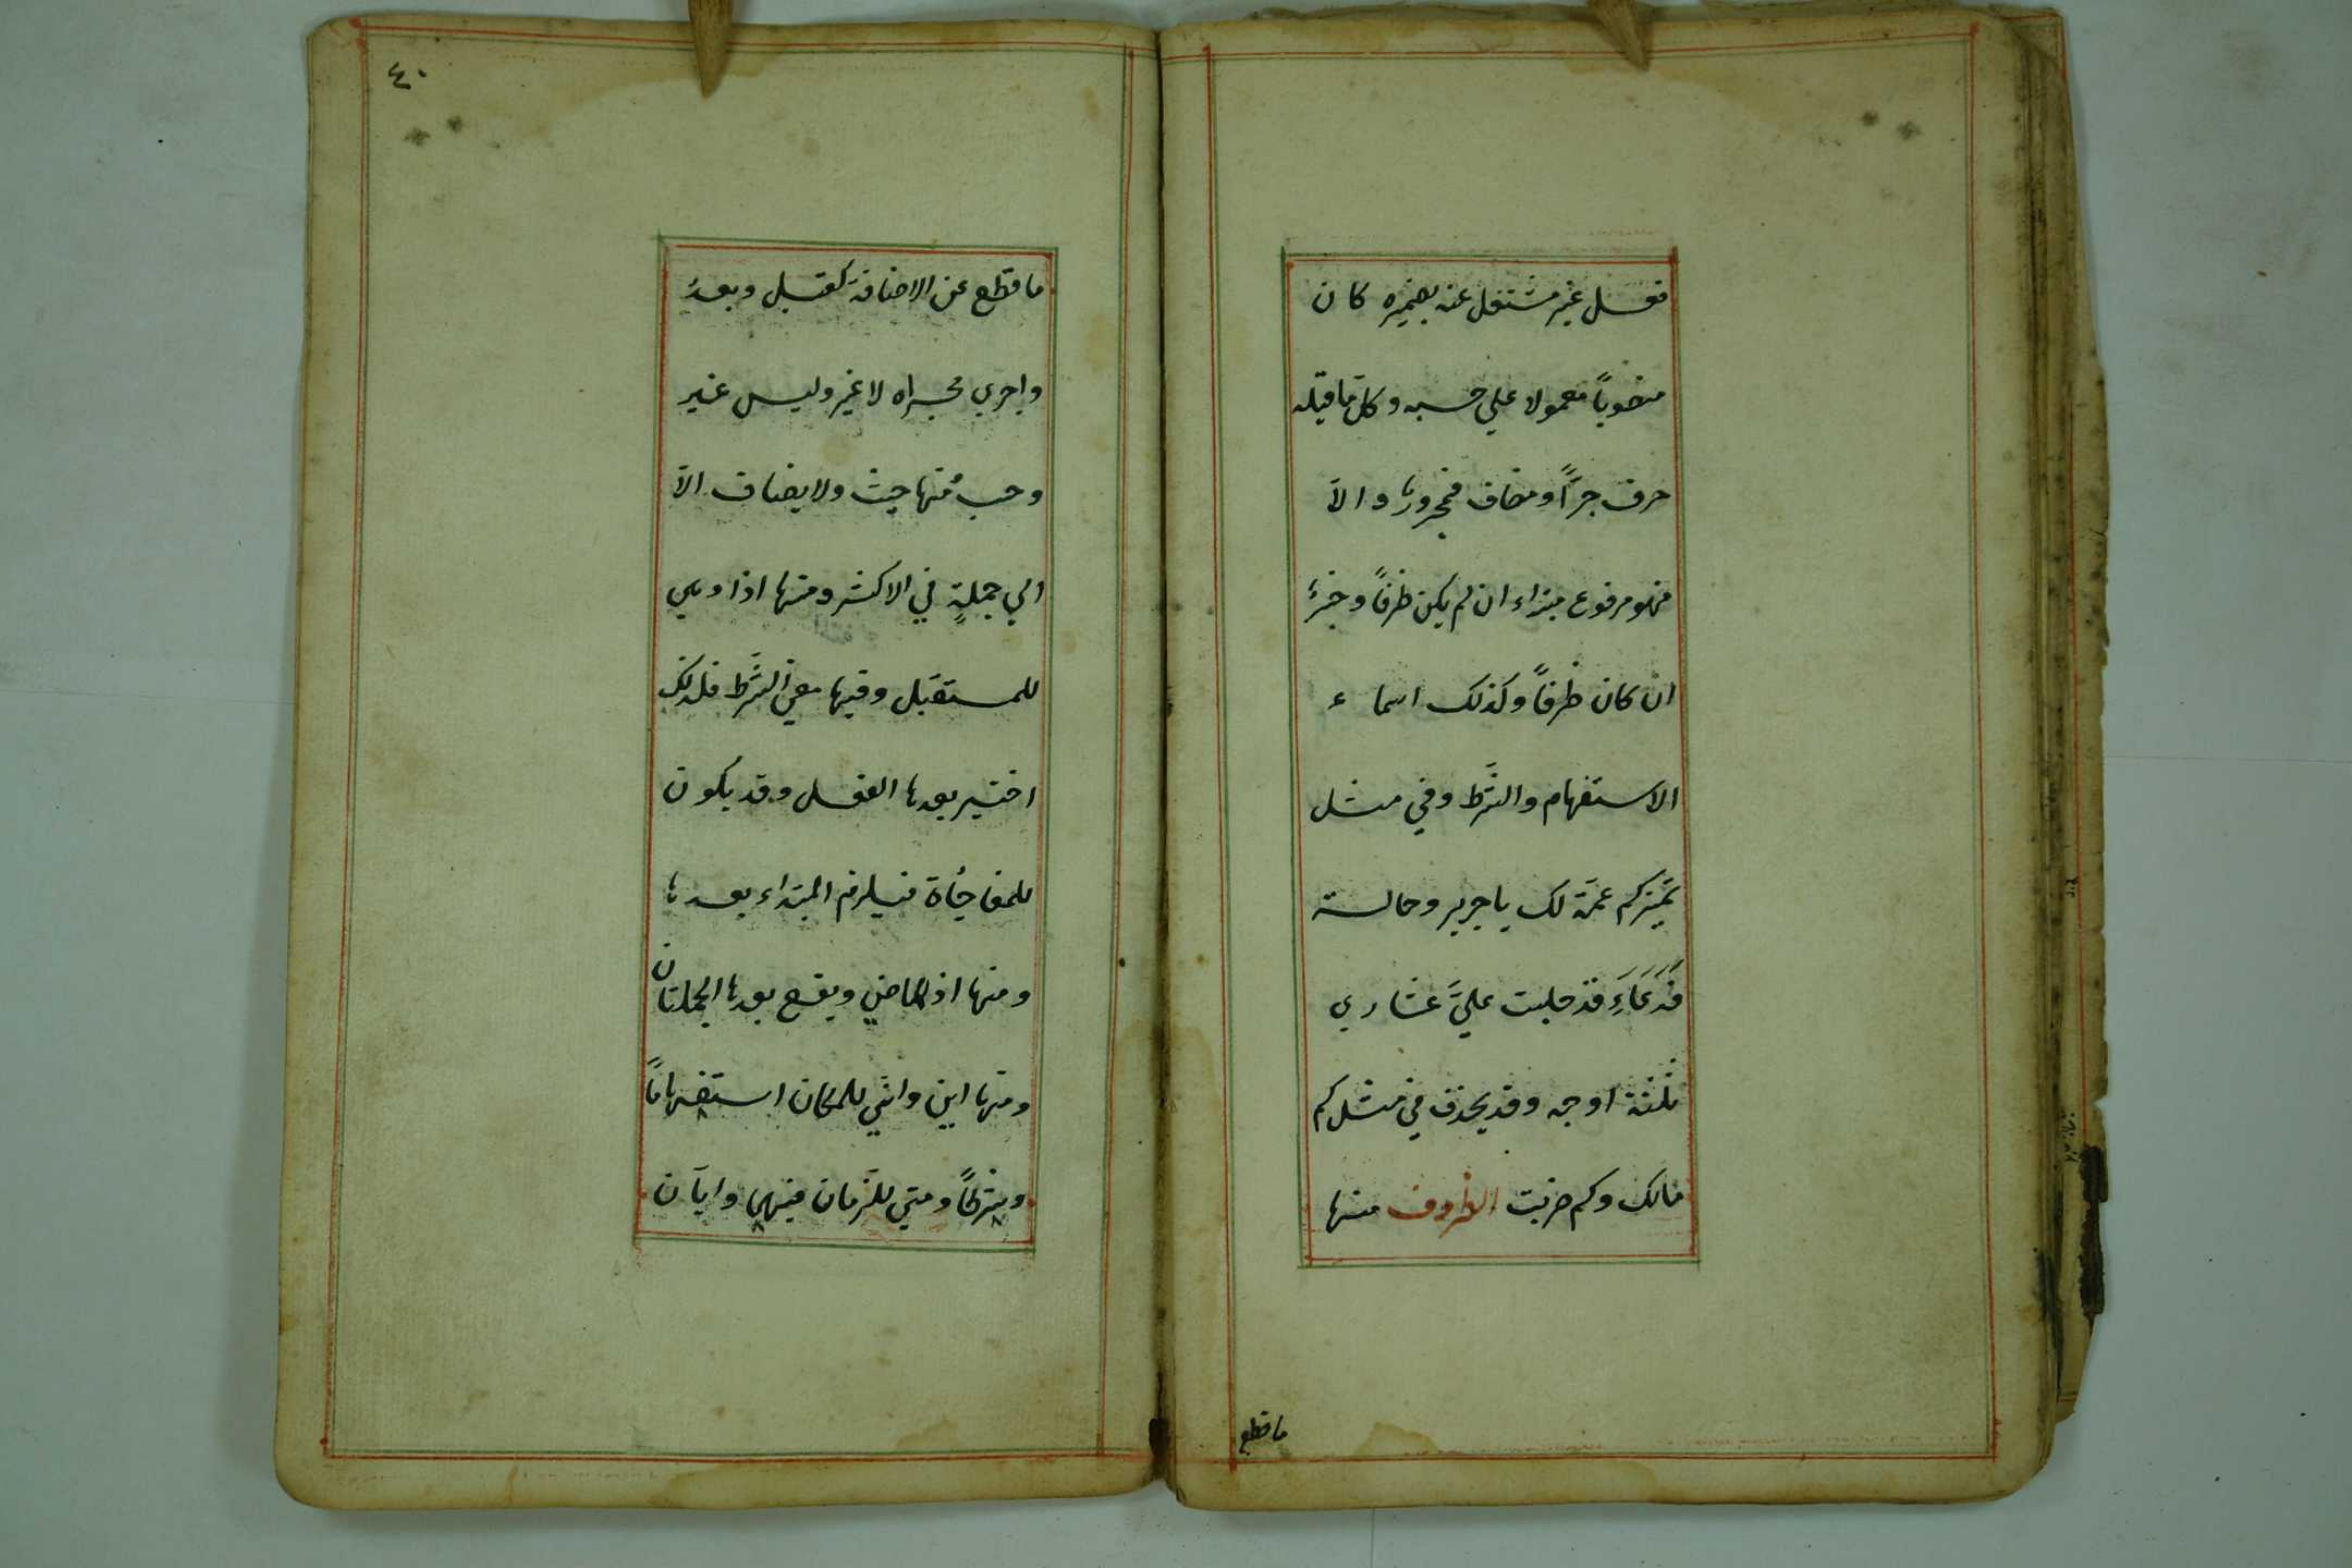 فعل غير مشتغل عنه بضميره كان
منصوباً معمولا علي حسبه وكل ما قبله
حرف جرّاً ومضاف فمجرورها والاّ
فهو مرفوع مبتداء ان لم يكن ظرفاً وخبرً
ان كان ظرفاً وكذلك اسماء
الاستفهام والشّرط وفي مثل
تميّزكم عمّة لك يا جرير وخالة
فَدَعَاءَِ قد حلبت عليَّ عشاري
ثلثة اوجه وقد يحذف في مثل كم
مالك وكم ضربت الظروف منها
ما قطع
٤٠
ما قطع عن الاضافة كقبل وبعدُ
واجري مجراه لا غير وليس غير
وحسبُ ومنها حيث ولا يضاف الاّ
الي جملةٍ في الاكثر ومنها اذا وهي
للمستقبل وفيها معني الشّرط فلذلك
اختير بعدها الفعل وقد يكون
للمفاجُاة فيلزم المبتداء بعدها
ومنها اذ للماضي ويقع بعدها الجملتان
ومنها اين وانّي للمكان استفهاماً
وشرطاً ومتي للزّمان فيهما وايّان